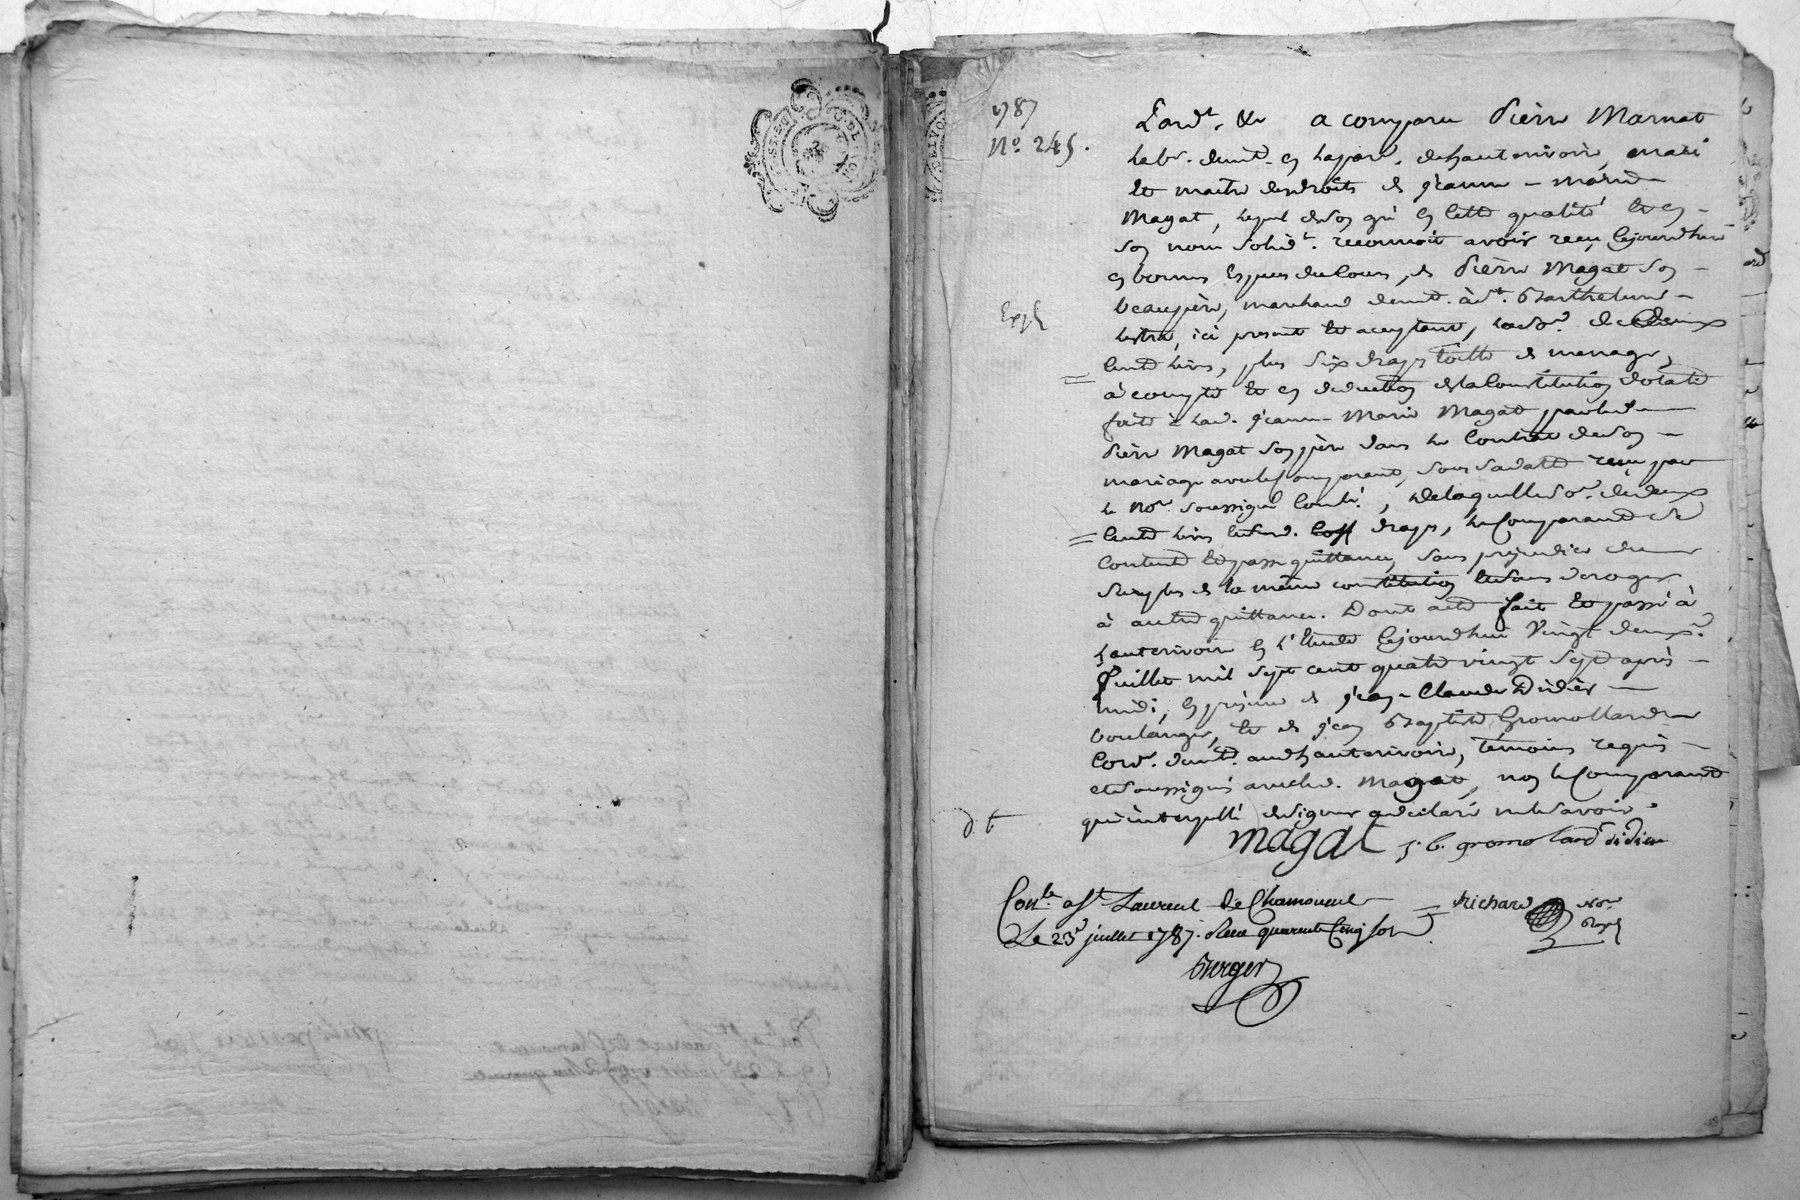 1787
N.º 245.
Pard.t &a a comparu Pièrre Marnat
lab.r demt. en la par. d'hauterivoire, mari
et maitre des droits de jeanne-marie
Magat, lequel de son gré en cette qualité et en
son nom solid.t reconnoit avoir recu cejourd'huy
en bonnes especes du cours, de Pièrre Magat son
beaupère, marchand demt. à St. Barthelemi
lestra, ici present et aceptant, la so.e de deux
Expé
cents livres, plus six draps toille de menage,
à compte et en deduction de la Constitution dotale
faite à lad. jeanne-Marie Magat par led.
Pièrre Magat son père dans le Contrat de son
mariage avec le Comparant, sous sa datte reçu par
le no.re soussigné Contlé, de laquelle so.e de deux
cents livres et desd. six draps, le Comparant se
contente et passe quittance, sans prejudice du
surplus de la même constitution et sans deroger
à autre quittance. Dont acte fait et passé à
hauterivoire en l'Etude cejourd'hui vingt deux.e
Juillet mil sept cent quatre vingt sept après
midi, en présence de jean-Claude Didier
boulanger, et de jean Baptiste Gromolland
Cord.r demt. aud. hauterivoire, témoins requis
et soussignés avec led. Magat, non le Comparant
qui interpellé de signer a declaré ne le savoir.
d. t
Magat j. b. gromoland didier
Con.le a St. Laurent de Chamousset
Le 23.e juillet 1787. Reçu quarente Cinq sols
Richard No.re Royal
Berger